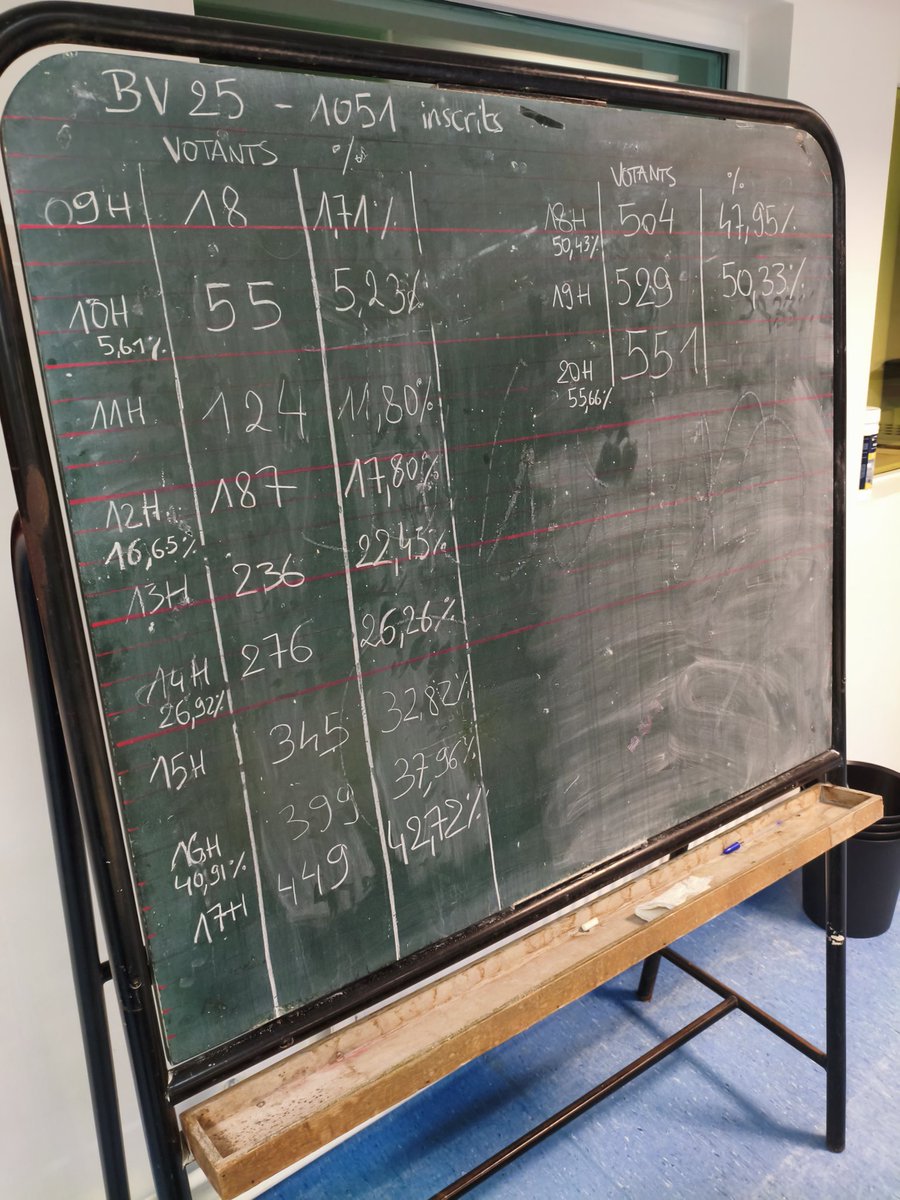 BV 25 - 1051 inscrits
VOTANTS %
09H 18 1,71%
10H 55 5,23%
5,61%
11H 124 11,80%
12H 187 17,80%
16,65%
13H 236 22,45%
14H 276 26,26%
26,92%
15H 345 32,82%
16H 399 37,96%
40,91%
17H 449 42,72%
VOTANTS %
18H 504 47,95%
50,43%
19H 529 50,33%
20H 551
55,66%